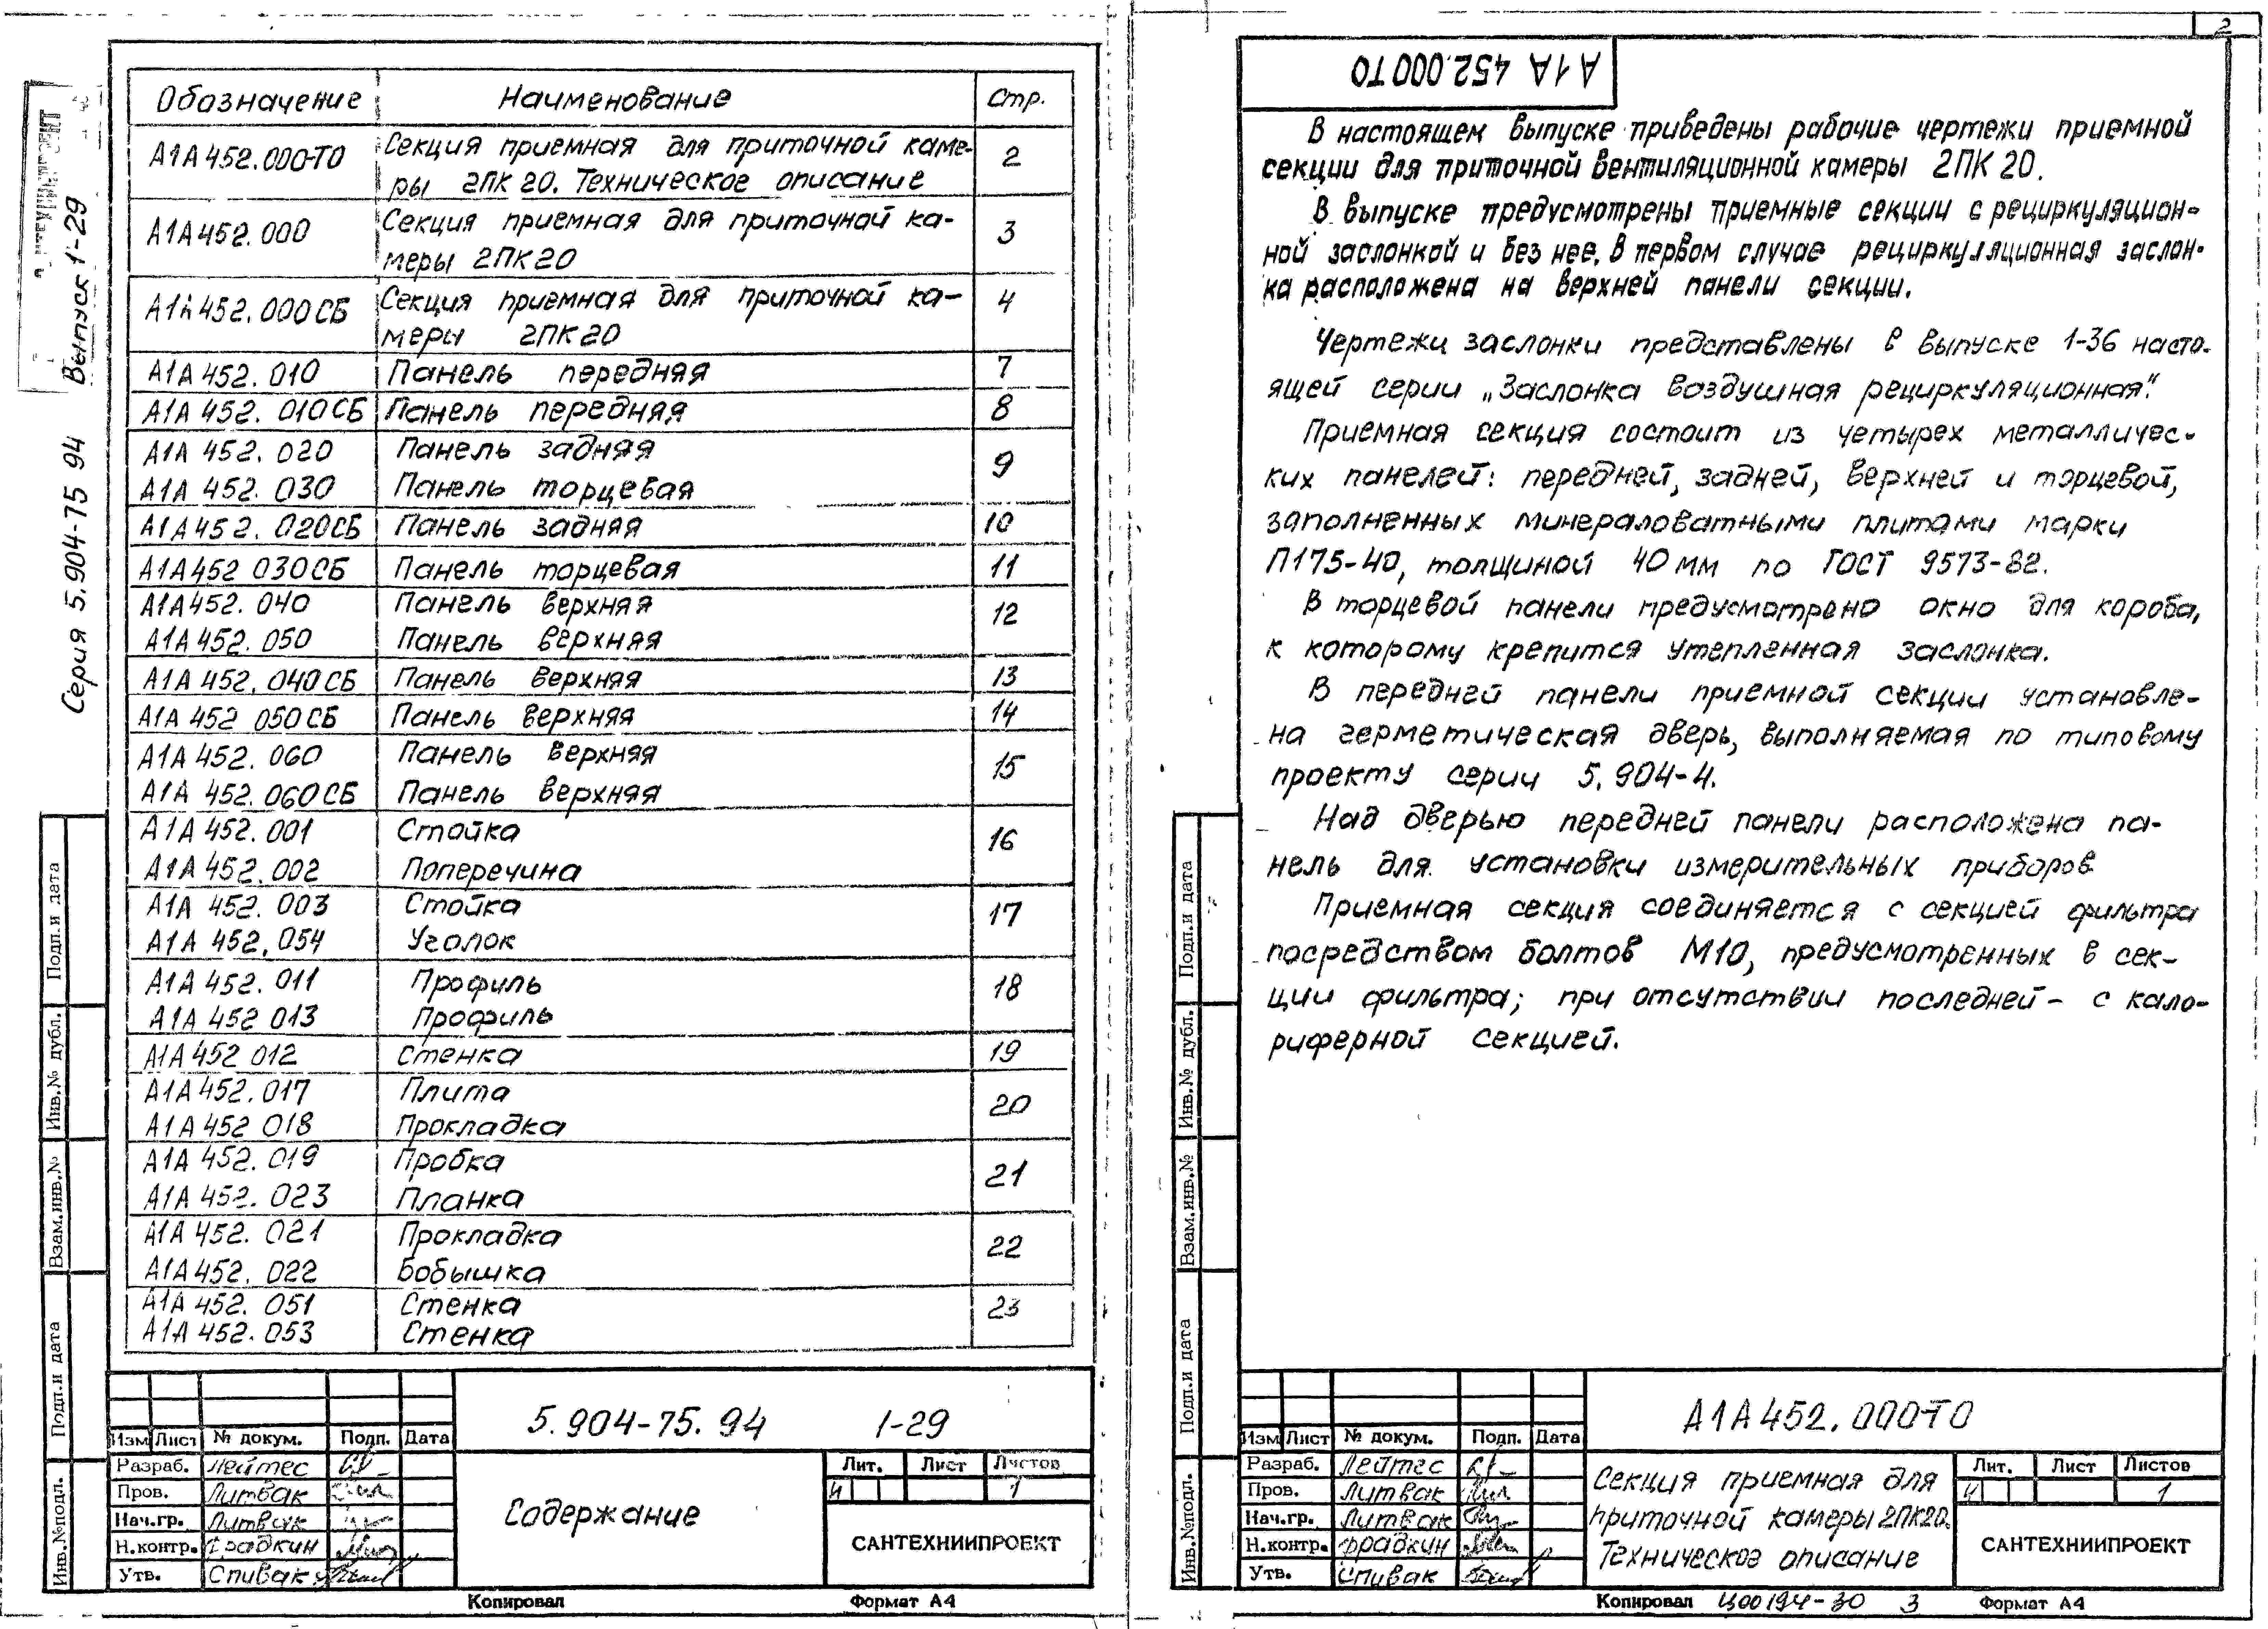 Серия 5.904-75 94 Выпуск 1-29
Обозначение Наименование Стр.
А1А452.000ТО Секция приемная для приточной каме-
ры 2ПК 20. Техническое описание 2
А1А452.000 Секция приемная для приточной ка-
меры 2ПК20 3
А1А452.000СБ Секция приемная для приточной ка-
меры 2ПК20 4
А1А 452.010 Панель передняя 7
А1А 452.010СБ Панель передняя 8
А1А 452.020 Панель задняя 9
А1А 452.030 Панель торцевая
А1А452.020СБ Панель задняя 10
А1А452 030СБ Панель торцевая 11
А1А452.040 Панель верхняя 12
А1А452.050 Панель верхняя
А1А 452.040СБ Панель верхняя 13
А1А 452 050СБ Панель верхняя 14
А1А 452.060 Панель верхняя 15
А1А 452.060СБ Панель верхняя
А1А 452.001 Стойка 16
А1А 452.002 Поперечина
А1А 452.003 Стойка 17
А1А 452.054 Уголок
А1А 452.011 Профиль 18
А1А 452 013 Профиль
А1А452 012 Стенка 19
А1А452.017 Плита 20
А1А 452 018 Прокладка
А1А 452.019 Пробка 21
А1А 452.023 Планка
А1А 452.021 Прокладка 22
А1А452.022 Бобышка
А1А 452.051 Стенка 23
А1А 452.053 Стенка
Подп.и дата
Инв.№ дубл.
Взам.инв.№
Подп.и дата
Инв.№подл.
5.904-75.94 1-29
Изм Лист № докум. Подп. Дата
Разраб. Лейтес
Пров. Литвак
Нач.гр. Литвак
Н.контр. Фрадкин
Утв. Спивак
Содержание
Лит. Лист Листов
И 1
САНТЕХНИИПРОЕКТ
Копировал Формат А4
2
А1А 452.000ТО
В настоящем выпуске приведены рабочие чертежи приемной
секции для приточной вентиляционной камеры 2ПК 20.
В выпуске предусмотрены приемные секции с рециркуляцион-
ной заслонкой и без нее. В первом случае рециркуляционная заслон-
ка расположена на верхней панели секции.
Чертежи заслонки представлены в выпуске 1-36 насто-
ящей серии „Заслонка воздушная рециркуляционная".
Приемная секция состоит из четырех металличес-
ких панелей: передней, задней, верхней и торцевой,
заполненных минераловатными плитами марки
П175-40, толщиной 40 мм по ГОСТ 9573-82.
В торцевой панели предусмотрено окно для короба,
к которому крепится утепленная заслонка.
В передней панели приемной секции установле-
на герметическая дверь, выполняемая по типовому
проекту серии 5.904-4.
Над дверью передней панели расположена па-
нель для установки измерительных приборов
Приемная секция соединяется с секцией фильтра
посредством болтов М10, предусмотренных в сек-
ции фильтра; при отсутствии последней - с кало-
риферной секцией.
Подп.и дата
Инв.№ дубл.
Взам.инв.№
Подп.и дата
Инв.№подл.
А1А452.000ТО
Изм Лист № докум. Подп. Дата
Разраб. Лейтес
Пров. Литвак
Нач.гр. Литвак
Н.контр. Фрадкин
Утв. Спивак
Секция приемная для
приточной камеры 2ПК20.
Техническое описание
Лит. Лист Листов
И 1
САНТЕХНИИПРОЕКТ
Копировал Ц00194-30 3 Формат А4